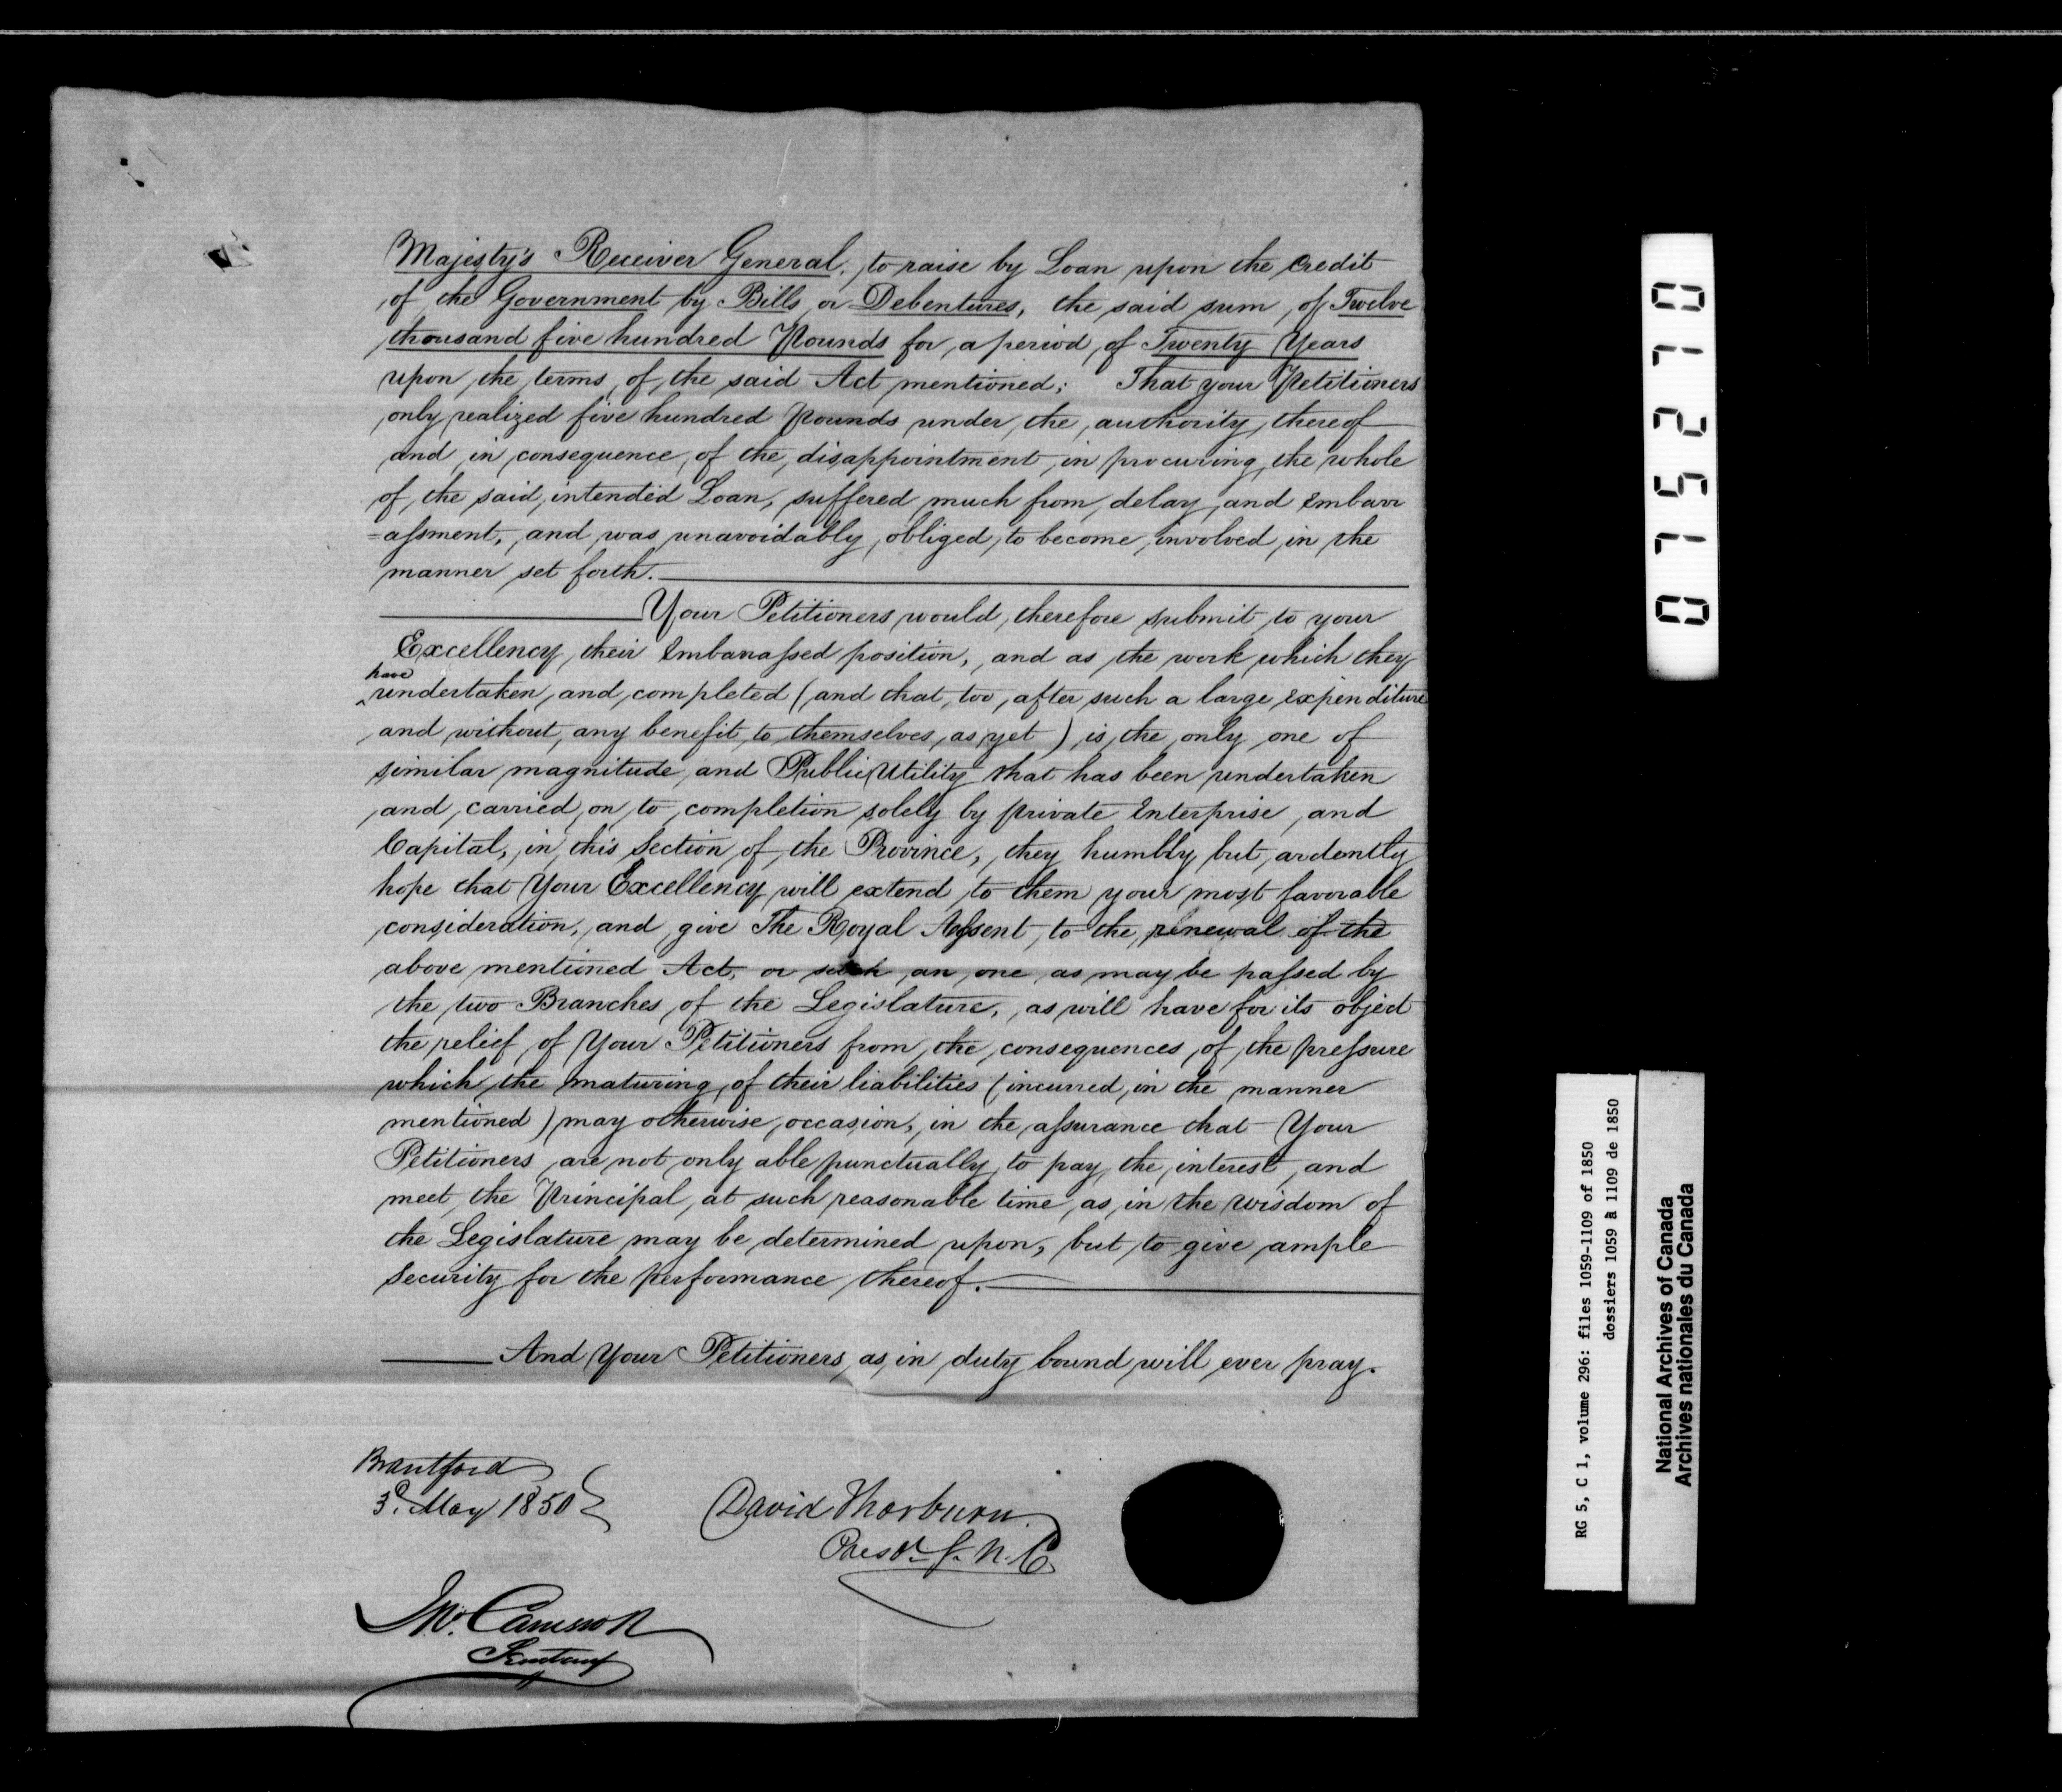 Majesty's Receiver General, to raise by Loan upon the Credit
of the Government by Bills or Debentures, the said sum of Twelve
thousand five hundred Pounds for a period of Twenty Years
upon the terms of the said Act mentioned; That your Petitioners
only realized five hundred Pounds under the authority thereof
and in consequence of the disappointment in procuring the whole
of the said intended Loan, suffered much from delay and Embarr
=assment, and was unavoidably obliged to become involved in the
manner set forth.
Your Petitioners would therefore submit to your
Excellency their Embarrassed position, and as the work which they
have
undertaken and completed (and that too after such a large expenditure
and without any benefit to themselves as yet) is the only one of
similar magnitude and Public Utility that has been undertaken
and carried on to completion solely by private Enterprise and
Capital, in this Section of the Province, they humbly but ardently
hope that Your Excellency will extend to them your most favorable
consideration, and give The Royal Assent to the renewal of the
above mentioned Act, or such an one as may be passed by
the two Branches of the Legislature, as will have for its object
the relief of Your Petitioners from the consequences of the pressure
which the maturing of their liabilities (incurred in the manner
mentioned) may otherwise occasion, in the assurance that Your
Petitioners are not only able punctually to pay the interest and
meet the Principal at such reasonable time as in the wisdom of
the Legislature may be determined upon, but to give ample
Security for the performance thereof.
And Your Petitioners as in duty bound will ever pray.
Brantford
3d. May 1850
David Thorburn
Presdt G. N. C
Jno. Cameron
Secretary
075270
RG 5, C 1, volume 296: files 1059-1109 of 1850
dossiers 1059 à 1109 de 1850
National Archives of Canada
Archives nationales du Canada